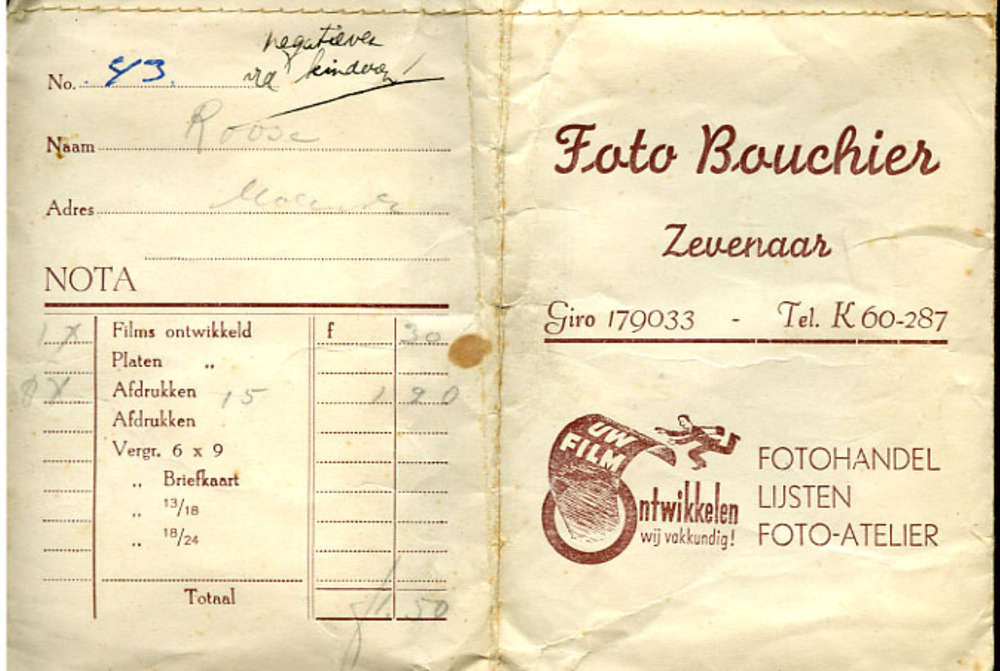 negatieven
No. 43.
v/d kinderen!
Naam Roose
Adres
NOTA
1 x Films ontwikkeld f 30
Platen „
8 x Afdrukken 15 1 20
Afdrukken
Vergr. 6 x 9
„ Briefkaart
„ 13/18
„ 18/24
Totaal f 1.50
Foto Bouchier
Zevenaar
Giro 179033 - Tel. K 60-287
UW
FILM
Ontwikkelen
wij vakkundig!
FOTOHANDEL
LIJSTEN
FOTO-ATELIER